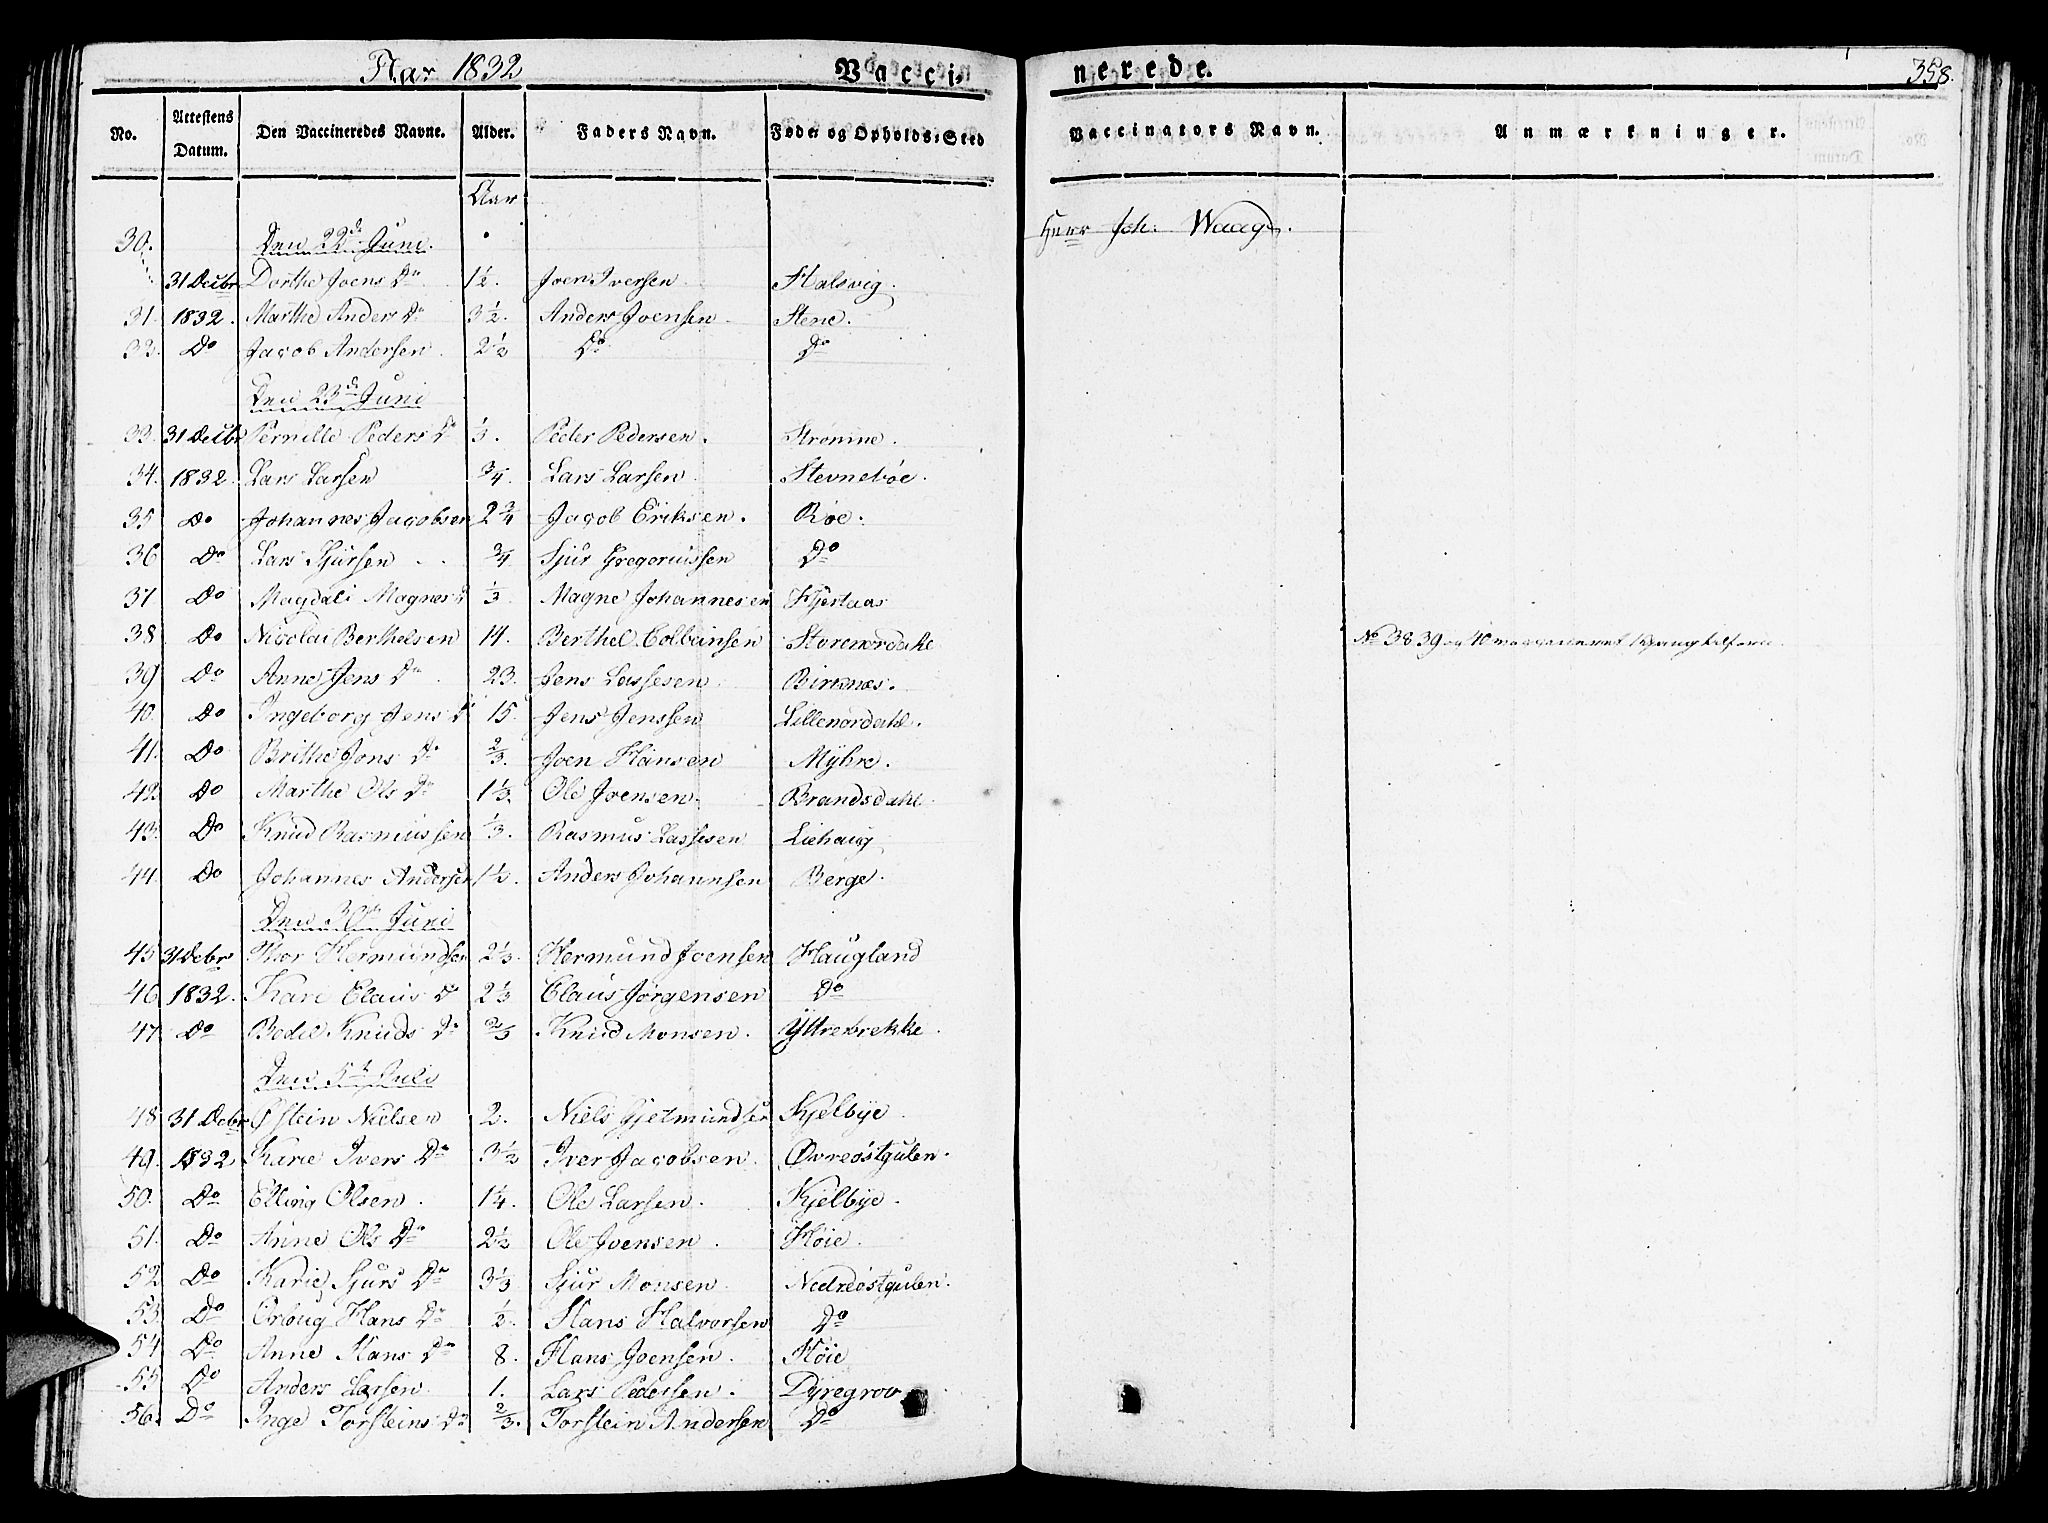 Aar 1832 Vacci-nerede. 358.
No. Attestens Datum. Den Vaccineredes Navne. Alder. Faders Navn. Føde- og Opholds-Sted Vaccinators Navn. Anmærkninger.
Aar
30. Den 22de Juni. Herr Joh: Waage.
31 Decbr Dorthe Joens Dr 1½. Joen Iversen Halsvig.
31. 1832. Marthe Anders Dr 3½. Anders Joensen Stene.
32. Do Jacob Andersen 2½ Do Do
Den 23de Juni
33. 31 Decbr Pernille Peders Dr ⅓. Peder Pedersen. Strømme.
34. 1832. Lars Larsen ¾. Lars Larsen Stevnebøe.
35 Do Johannes Jacobsen 2¾ Jacob Eriksen. Røe.
36 Do Lars Sjursen ¾ Sjur Gregoriussen Do
37 Do Magdeli Magnes Dr ⅓. Magne Johannesen Hjertaas
38. Do Nicolai Berthelsen 14. Berthel Colbeinsen Storenordahl No 38 39 og 40
39 Do Anne Jens Dr 23. Jens Lassesen Birknæs.
40. Do Ingeborg Jens Dr 15. Jens Jenssen Lillenordahl.
41. Do Brithe Jons Dr ⅔. Joen Hansen Myhre.
42 Do Marthe Ols Dr 1⅓. Ole Joensen. Brandsdahl
43. Do Knud Rasmussen ⅓. Rasmus Lassesen Liehaug
44. Do Johannes Andersen 1½. Anders Johannsen Berge.
Den 30te Juni
45 31 Decbr Thor Hermundsen 2⅓. Hermund Joensen Haugland
46 1832. Kari Claus Dr 2⅓ Claus Jørgensen Do
47 Do Bodil Knuds Dr ⅔ Knud Monsen. Yttrebrekke.
Den 5te Juli
48 31 Decbr Østein Nielsen 2. Niels Gjetmundsen Kjelbye.
49. 1832. Karie Ivers Dr 3½ Iver Jacobsen. Øvreøstgulen.
50. Do Elling Olsen. 1¼. Ole Larsen. Kjelbye.
51. Do Anne Ols Dr 2½ Ole Joensen. Høie.
52 Do Karie Sjurs Dr 3⅓ Sjur Monsen. Nedreøstgulen.
53. Do Orloug Hans Dr ½. Hans Halvorsen Do
54 Do Anne Hans Dr 8. Hans Joensen. Høie
55 Do Anders Larsen 1. Lars Pedersen. Dyregrov
56. Do Inge Torsteins Dr ⅔. Torstein Andersen Do